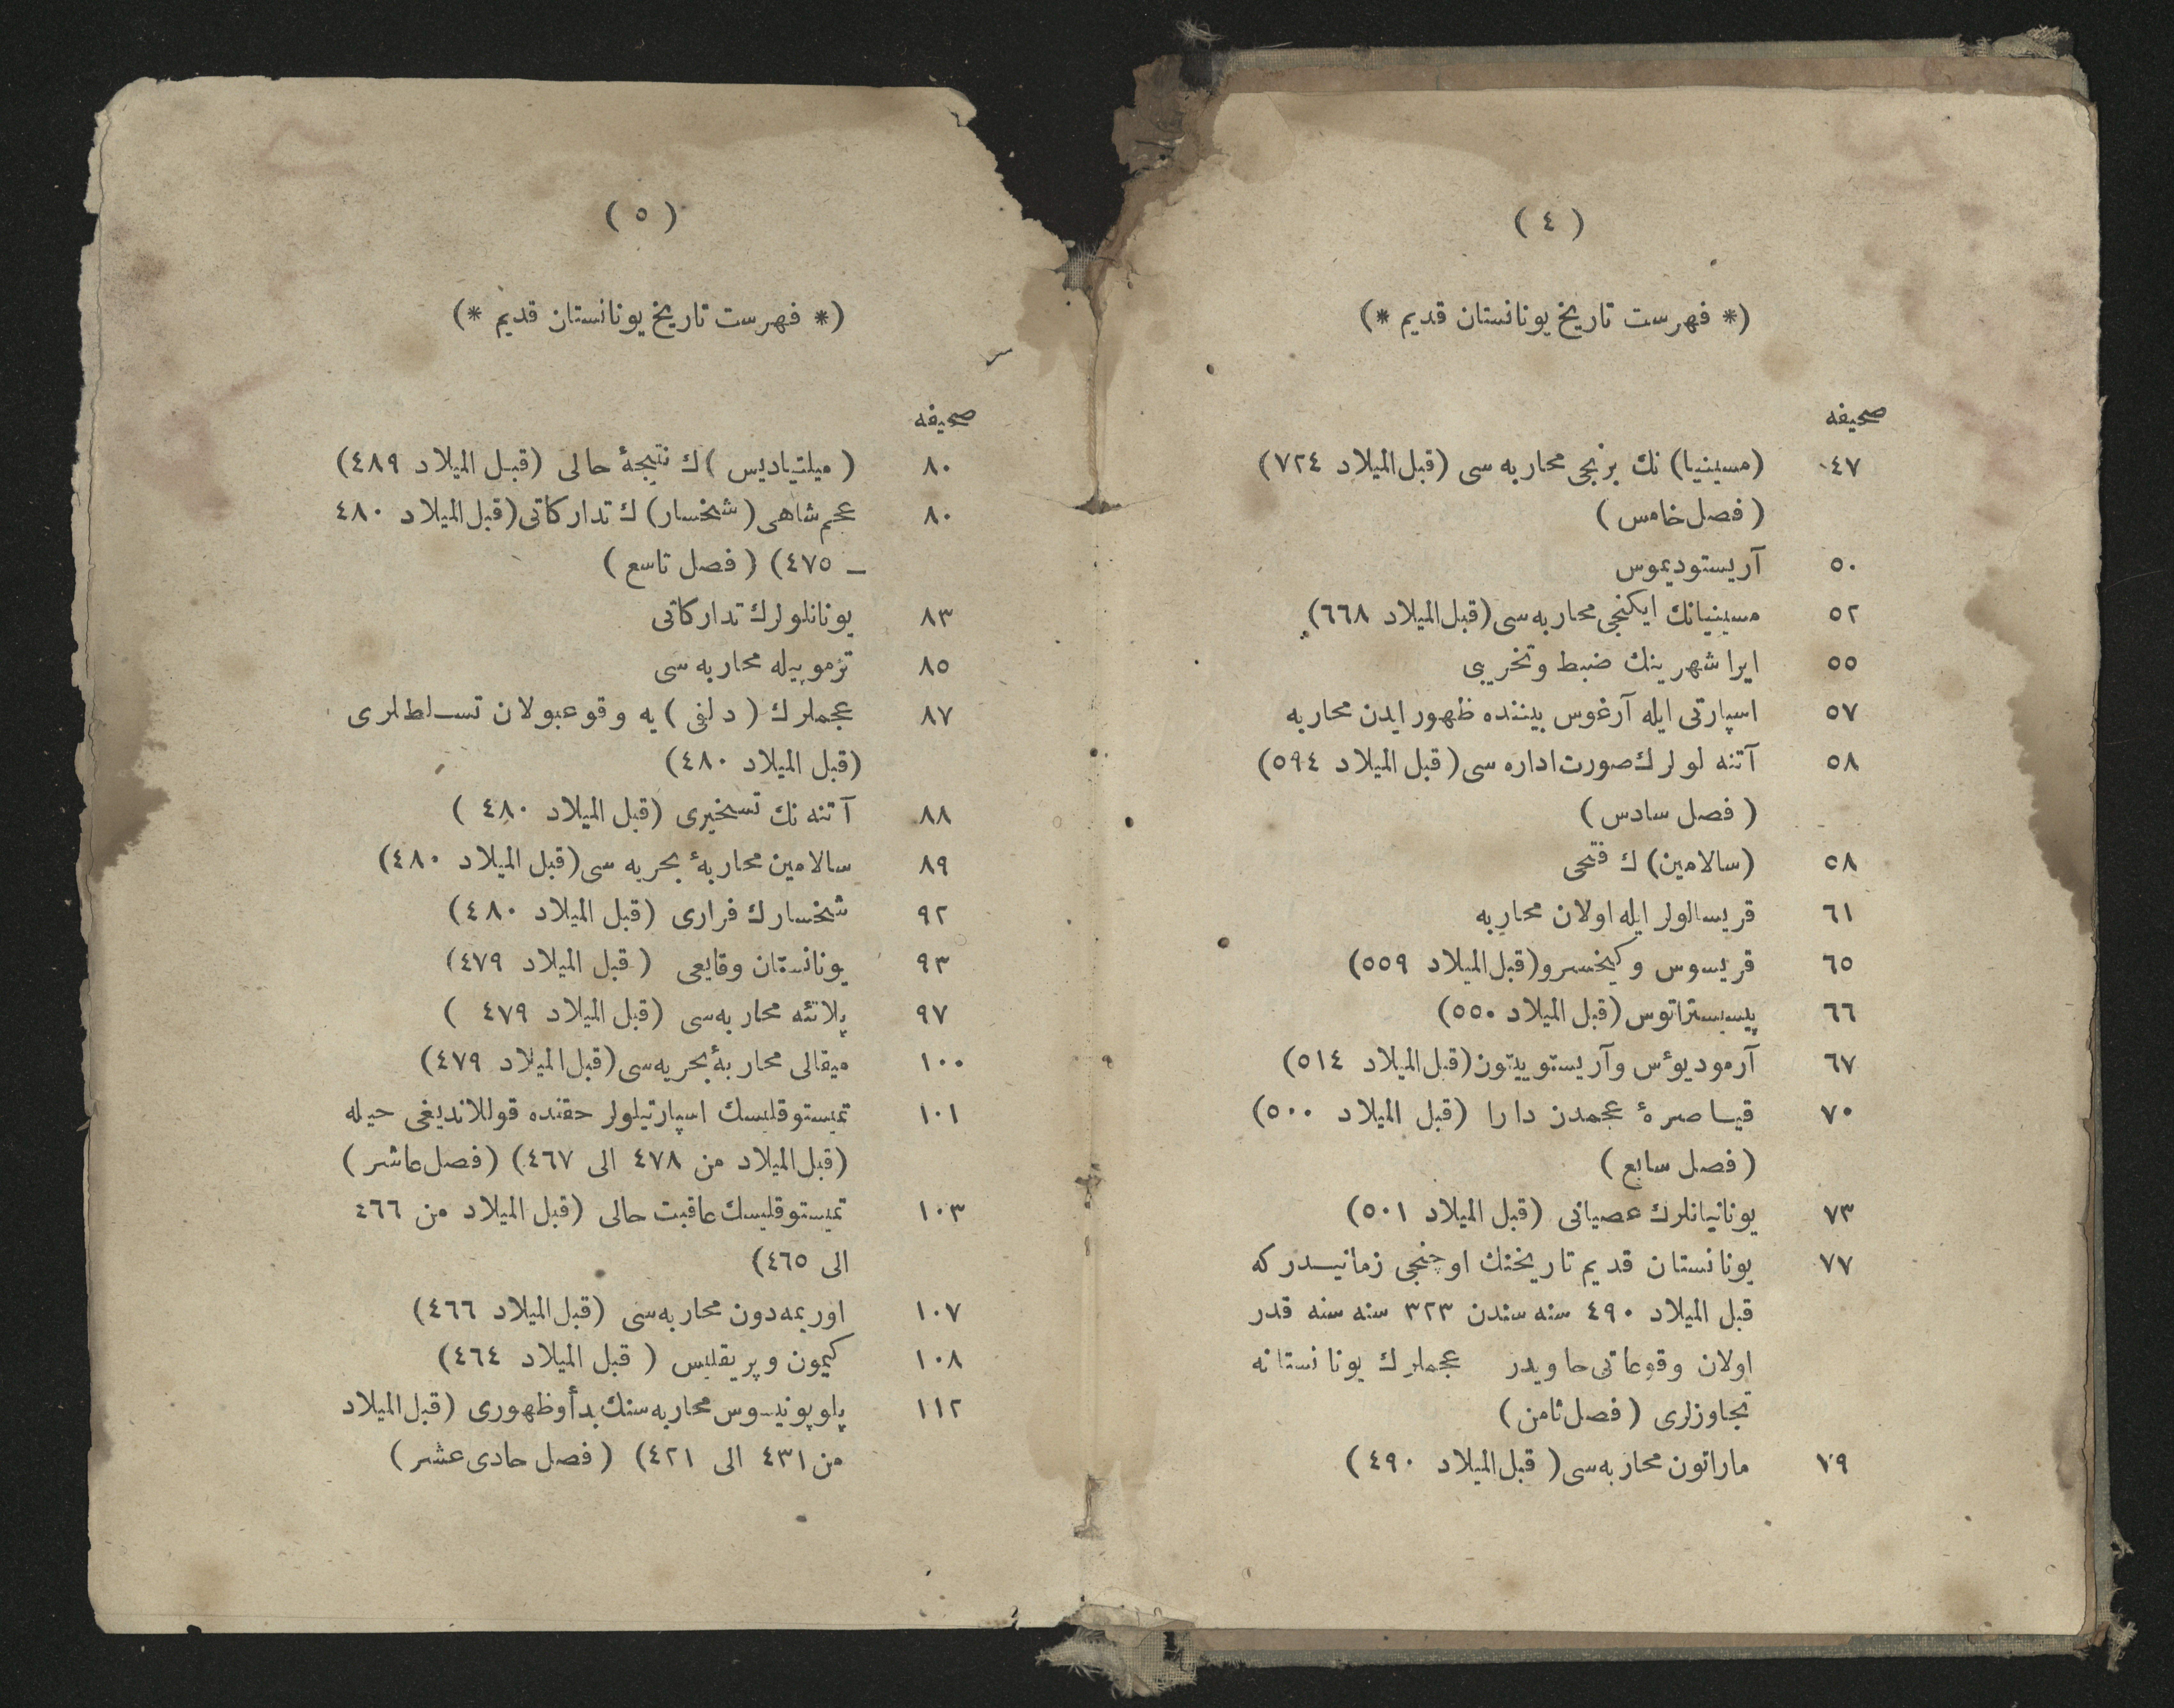 ( ٤ )
(* فهرست تاریخ یونانستان قدیم *)
صحیفه
٤٧ (مسینیا) نك برنجی محاربه سی (قبل المیلاد ٧٢٤)
( فصل خامس )
٥٠ آریستودیموس
٥٢ مسینیانك ایکنجی محاربه سی (قبل المیلاد ٦٦٨)
٥٥ ایرا شهرینك ضبط و تخریبی
٥٧ اسپارتی ایله آرغوس بیننده ظهور ایدن محاربه
٥٨ آتنه لولرك صورت اداره سی (قبل المیلاد ٥٩٤)
( فصل سادس )
٥٨ (سالامین) ك فتحی
٦١ قریسالولر ایله اولان محاربه
٦٥ قریسوس و کیخسرو (قبل المیلاد ٥٥٩)
٦٦ پیسیستراتوس (قبل المیلاد ٥٥٠)
٦٧ آرمودیوٴس وآریستوییتون (قبل المیلاد ٥١٤)
٧٠ قیاصرهٔ عجمدن دارا (قبل المیلاد ٥٠٠)
( فصل سابع )
٧٣ یونانیانلرك عصیانی (قبل المیلاد ٥٠١)
٧٧ یونانستان قدیم تاریخنك اوچنجی زمانیدرکه
قبل المیلاد ٤٩٠ سنه سندن ٣٢٣ سنه سنه قدر
اولان وقوعاتی حاویدر عجملرك یونانستانه
تجاوزلری ( فصل ثامن )
٧٩ ماراتون محاربه سی ( قبل المیلاد ٤٩٠ )
( ٥ )
(* فهرست تاریخ یونانستان قدیم *)
صحیفه
٨٠ ( میلتیادیس ) ك نتیجهٔ حالی (قبل المیلاد ٤٨٩)
٨٠ عجم شاهی (شخسار) ك تدارکاتی (قبل المیلاد ٤٨٠
ــ ٤٧٥) ( فصل تاسع )
٨٣ یونانلولرك تدارکاتی
٨٥ ترموپیله محاربه سی
٨٧ عجملرك ( دلفی ) یه وقوعبولان تسلطلری
(قبل المیلاد ٤٨٠)
٨٨ آتنه نك تسخیری (قبل المیلاد ٤٨٠ )
٨٩ سالامین محاربهٔ بحریه سی (قبل المیلاد ٤٨٠)
٩٢ شخسارك فراری (قبل المیلاد ٤٨٠)
٩٣ یونانستان وقایعی ( قبل المیلاد ٤٧٩)
٩٧ پلاتئه محاربه سی (قبل المیلاد ٤٧٩ )
١٠٠ میقالی محاربهٔ بحریه سی (قبل المیلاد ٤٧٩)
١٠١ تمیستوقلیسك اسپارتیلولر حقنده قوللاندیغی حیله
(قبل المیلاد من ٤٧٨ الی ٤٦٧) (فصل عاشر )
١٠٣ تمیستوقلیسك عاقبت حالی (قبل المیلاد من ٤٦٦
الی ٤٦٥)
١٠٧ اوریمه دون محاربه سی (قبل المیلاد ٤٦٦)
١٠٨ کیمون و پریقلیس ( قبل المیلاد ٤٦٤)
١١٢ پلوپونیسوس محاربه سنك بدأ وظهوری (قبل المیلاد
من ٤٣١ الی ٤٢١) ( فصل حادی عشر )